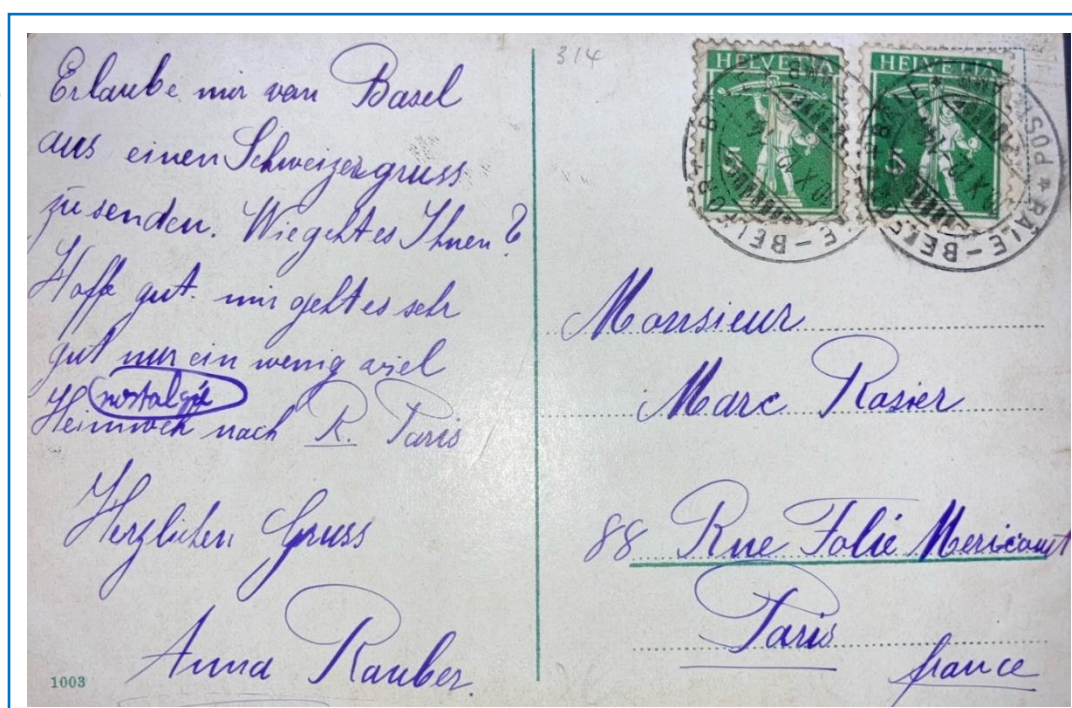 Erlaube mir von Basel
aus einen Schweizergruss
zu senden. Wie geht es Ihnen?
Hoffe gut. mir geht es sehr
gut nur ein wenig viel
nostalgie
Heimweh nach R. Paris
Herzlichen Gruss
Anna Rauber.
1003
314
HELVETIA
5
HELVETIA
5
BÂLE-BELFORT
AMB
Monsieur
Marc Rosier
88 Rue Folie Mericourt
Paris
france